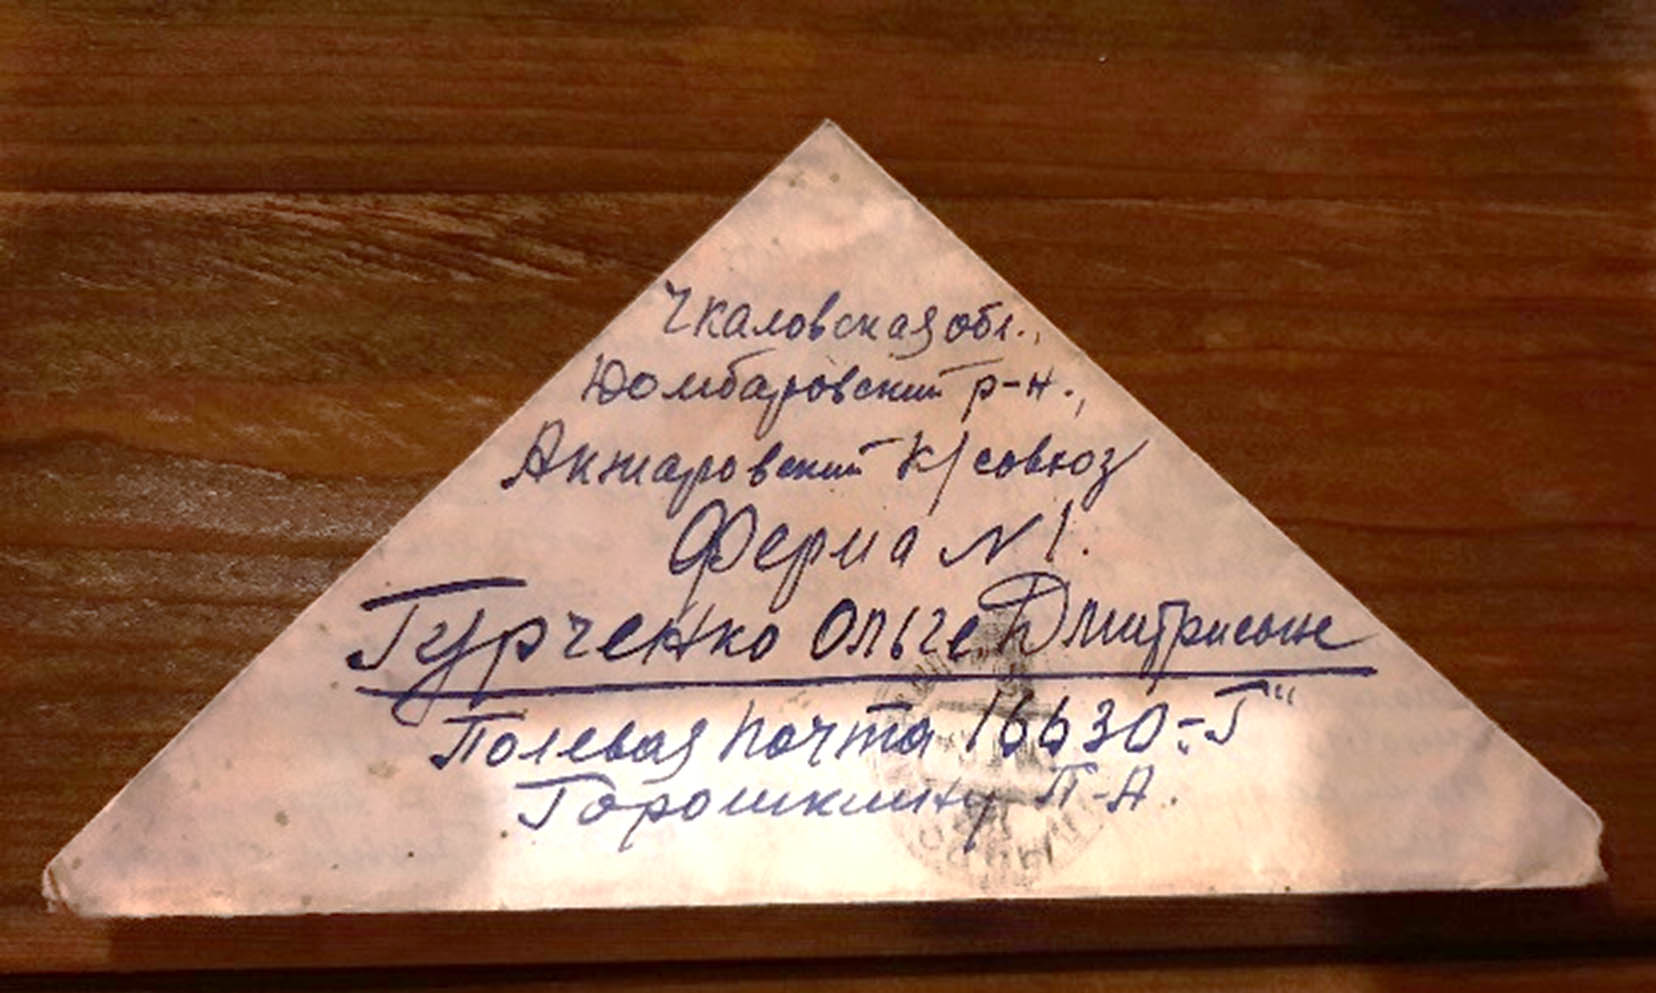 Чкаловская обл.,
Домбаровский р-н.,
Акжаровский к/совхоз
Ферма N 1.
Гурченко Ольге Дмитриевне
Полевая почта 16630-"Г"
Горошкину П-А.